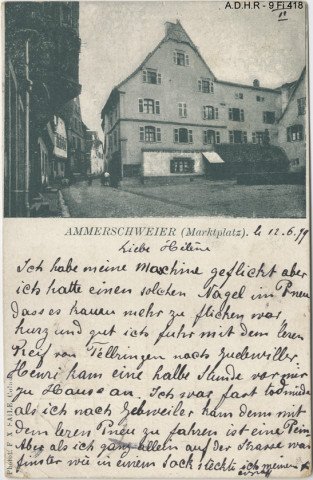 A.D.H.R - 9 Fi 418
AMMERSCHWEIER (Marktplatz). le 12.6.99
Liebe Hélène
Ich habe meine Machine geflickt aber
ich hatte einen solchen Nagel im Pneu
dass es kaum mehr zu flicken war
kurz und gut ich fuhr mit dem leren
Reif von nach Guebwiller.
Henri kam eine halbe Stunde vor mir
zu Hause an. Ich war fast todmüde
als ich nach Gebweiler kam denn mit
dem leren Pneu zu fahren ist eine Pein
Aber als ich ganz allein auf der Strasse war
finster wie in einem Sack steckte ich meinen
Photot. F. X. SAILE, Colmar